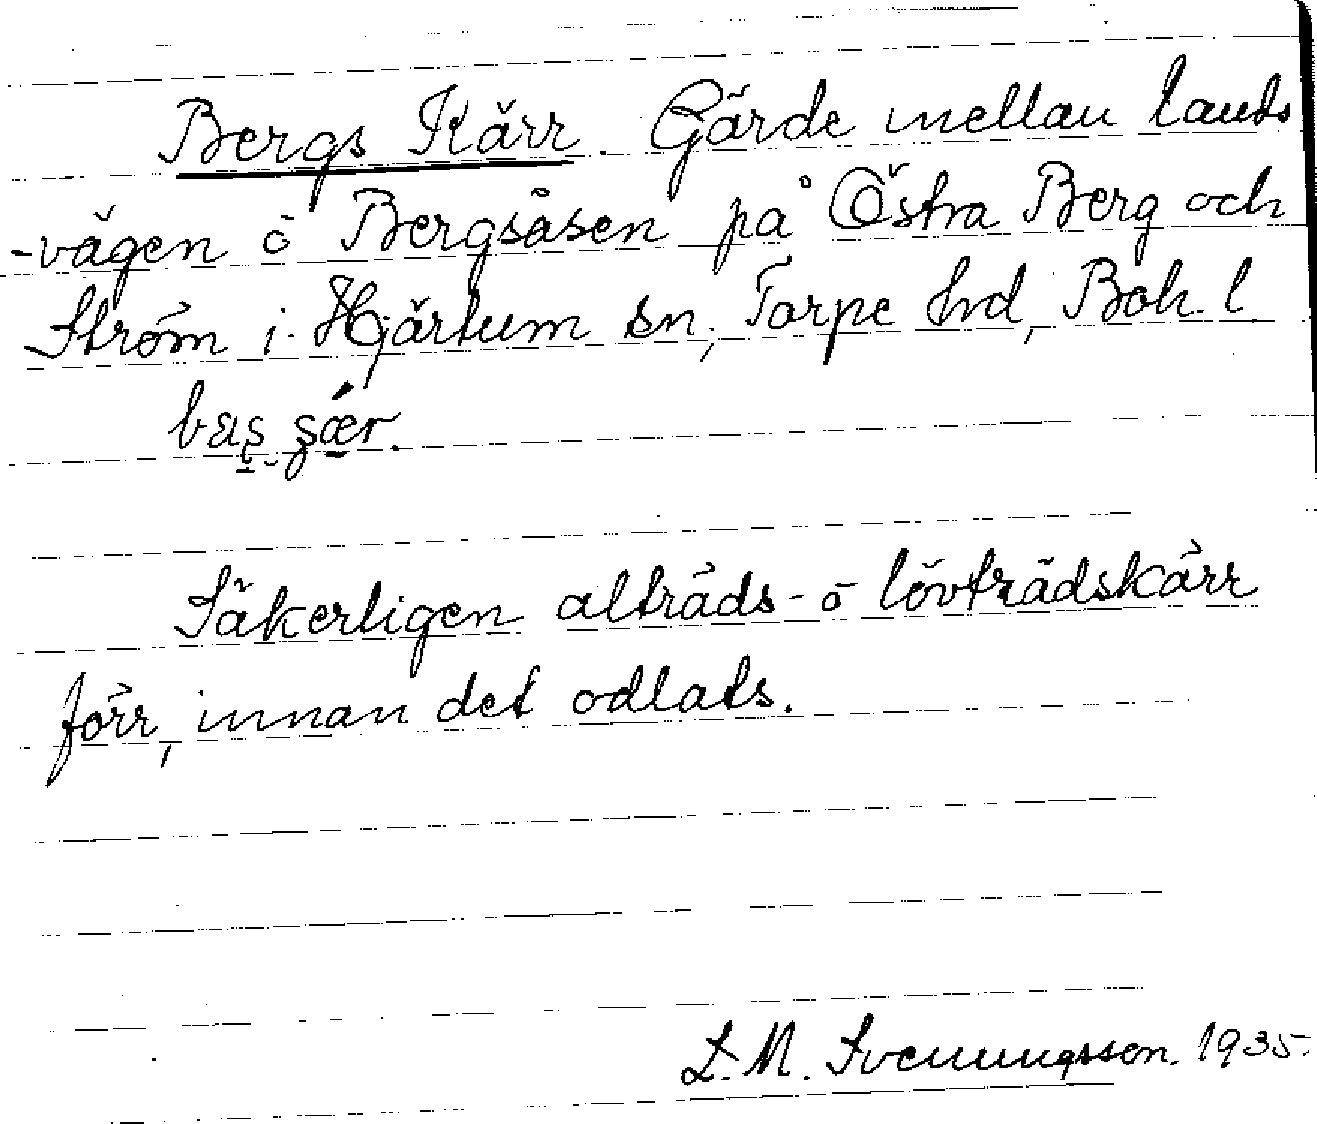 Bergs Kärr. Gärde mellan lands
-vägen o Bergsåsen på Östra Berg och
Ström i Hjärtum sn, Torpe hrd, Boh. l.
Säkerligen alträds- o lövträdskärr
förr, innan det odlats.
L. M. Svenungsson. 1935.